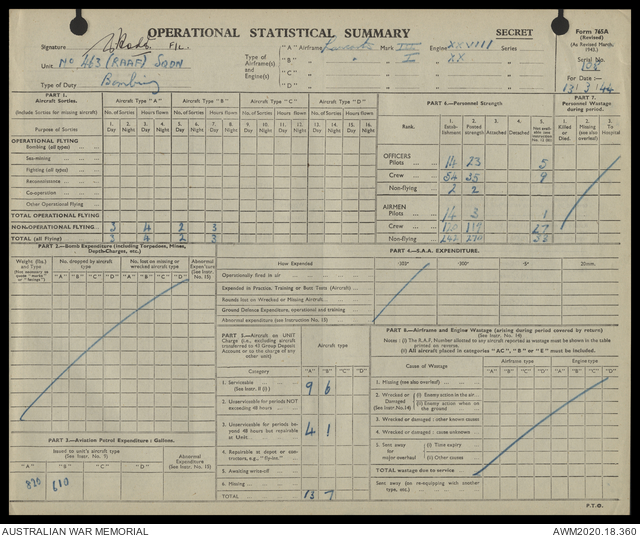 OPERATIONAL STATISTICAL SUMMARY
SECRET
Form 765A
(Revised)
(As Revised March, 1943.)
Signature F/L.
Serial No. 108
For Date:—
13/3/44
Unit No 463 (RAAF) SQDN
Type of Duty Bombing
Type of Airframe(s) and Engine(s):
"A" Airframe Lancaster Mark III Engine XXVIII Series
"B" " " I " XX
"C" "
"D" "
PART 1.
Aircraft Sorties.
(Include Sorties for missing aircraft)
Aircraft Type "A" Aircraft Type "B" Aircraft Type "C" Aircraft Type "D"
No. of Sorties Hours flown No. of Sorties Hours flown No. of Sorties Hours flown No. of Sorties Hours flown
Purpose of Sorties
1. Day 2. Night 3. Day 4. Night 5. Day 6. Night 7. Day 8. Night 9. Day 10. Night 11. Day 12. Night 13. Day 14. Night 15. Day 16. Night
OPERATIONAL FLYING
Bombing (all types)
Sea-mining
Fighting (all types)
Reconnaissance
Co-operation
Other Operational Flying
TOTAL OPERATIONAL FLYING
NON-OPERATIONAL FLYING 3 4 2 3
TOTAL (all Flying) 3 4 2 3
PART 6.—Personnel Strength
Rank.
1. Establishment
2. Posted strength
3. Attached
4. Detached
5.
OFFICERS
Pilots 14 23 5
Crew 54 35 9
Non-flying 2 2
AIRMEN
Pilots 14 3 1
Crew 27
Non-flying
PART 7.
Personnel Wastage during period.
1. Killed or Died.
2. Missing (see also overleaf)
3. To Hospital
PART 2.—Bomb Expenditure (including Torpedoes, Mines, Depth-Charges, etc.)
Weight (lbs.) and Type
No. dropped by aircraft type
No. lost on missing or wrecked aircraft type
Abnormal Expend'ture (See Instr. 15)
"A" "B" "C" "D" "A" "B" "C" "D"
PART 4.—S.A.A. EXPENDITURE.
How Expended ·303" ·300" ·5" 20mm.
Operationally fired in air
Expended in Practice, Training or Butt Tests (Aircraft)
Rounds lost on Wrecked or Missing Aircraft
Ground Defence Expenditure, operational and training
Abnormal expenditure (see Instruction No. 15)
PART 5.—Aircraft on UNIT Charge (i.e., excluding aircraft transferred to 43 Group Deposit Account or to the charge of any other unit)
Aircraft type
Category "A" "B" "C" "D"
1. Serviceable (See Instr. 8 (i)) 9 6
2. Unserviceable for periods NOT exceeding 48 hours
3. Unserviceable for periods beyond 48 hours but repairable at Unit 4 1
4. Repairable at depot or contractors, e.g., "fly-ins."
5. Awaiting write-off
6. Missing
TOTAL 13 7
PART 8.—Airframe and Engine Wastage (arising during period covered by return)
(See Instr. No. 14)
Notes: (i) The R.A.F. Number allotted to any aircraft reported as wastage must be shown in the table printed on reverse.
(ii) All aircraft placed in categories "AC," "B" or "E" must be included.
Cause of Wastage
Airframe type Engine type
"A" "B" "C" "D" "A" "B" "C" "D"
1. Missing (see also overleaf)
2. Wrecked or Damaged (See Inst. No.14)
(i) Enemy action in the air
(ii) Enemy action when on the ground
3. Wrecked or damaged: other known causes
4. Wrecked or damaged: cause unknown
5. Sent away for major overhaul
(i) Time expiry
(ii) Other causes
TOTAL wastage due to service
Sent away (so re-equipping with another type, etc.)
PART 3.—Aviation Petrol Expenditure: Gallons.
Issued to unit's aircraft type (See Instr. 9)
Abnormal Expenditure (See Instr. No. 15)
"A" "B" "C" "D"
820 610
P.T.O.
AUSTRALIAN WAR MEMORIAL
AWM2020.18.360